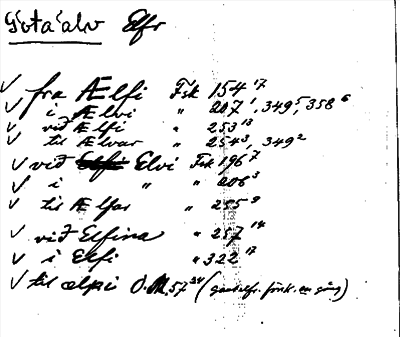 Gota alv Elfr
✓ fra Ælfi Fsk 154¹⁷
✓ i Ælvi " 207¹, 349⁵, 358⁶
✓ við Ælfi " 253¹³
✓ til Ælvar " 254³, 349²
✓ við Elvi Fsk 196⁷
✓ i " " 206³
✓ til Ælfar " 255⁹
✓ við Elfina " 257¹⁴
✓ i Elfi " 322¹⁷
✓ til ælpi O.M. 57²⁴ (